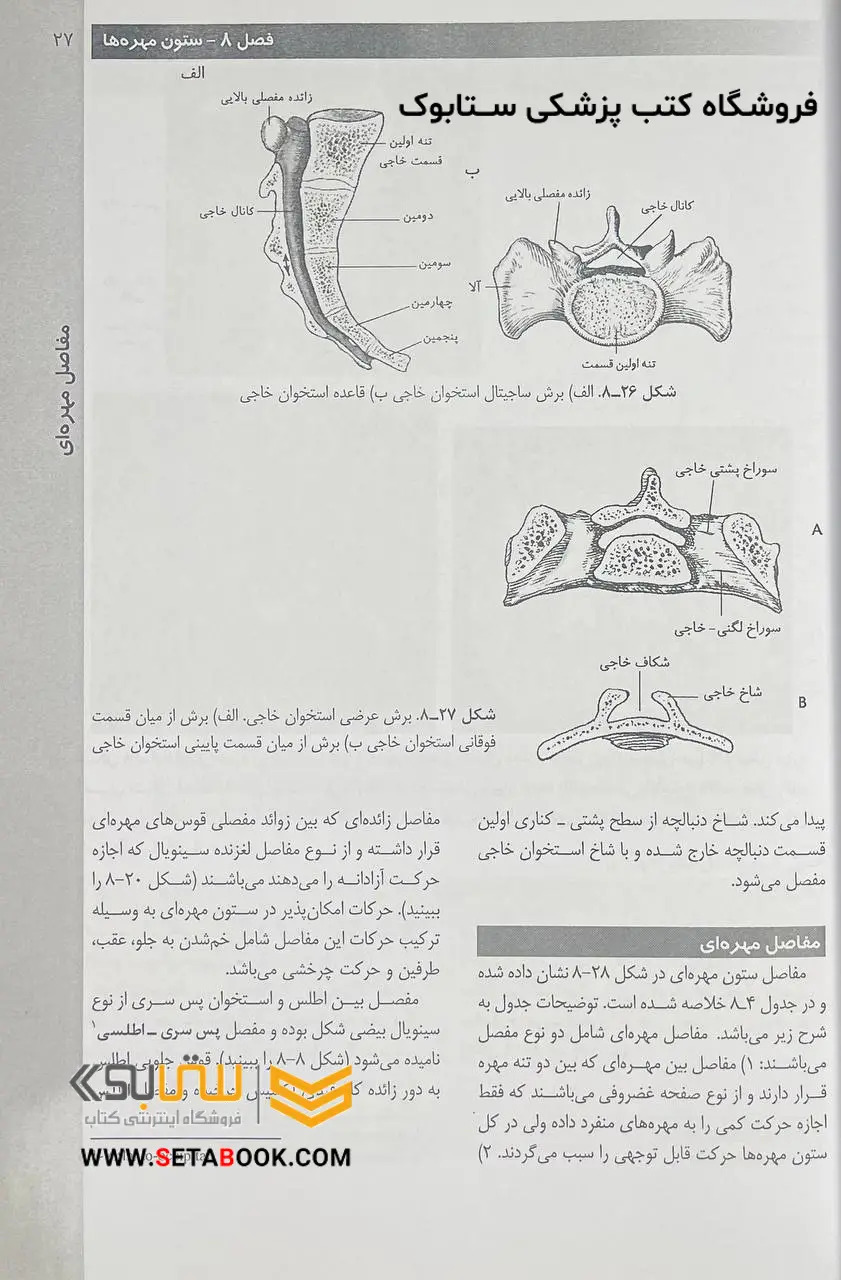 فصل ۸ – ستون مهره‌ها
۲۷
فروشگاه کتب پزشکی ستابوک
الف
زائده مفصلی بالایی
تنه اولین
قسمت خاجی
کانال خاجی
دومین
سومین
چهارمین
پنجمین
ب
زائده مفصلی بالایی
کانال خاجی
آلا
تنه اولین قسمت
شکل ۲۶–۸. الف) برش ساجیتال استخوان خاجی ب) قاعده استخوان خاجی
مفاصل مهره‌ای
سوراخ پشتی خاجی
A
سوراخ لگنی- خاجی
شکاف خاجی
شاخ خاجی
B
شکل ۲۷–۸. برش عرضی استخوان خاجی. الف) برش از میان قسمت
فوقانی استخوان خاجی ب) برش از میان قسمت پایینی استخوان خاجی
پیدا می‌کند. شاخ دنبالچه از سطح پشتی – کناری اولین
قسمت دنبالچه خارج شده و با شاخ استخوان خاجی
مفصل می‌شود.
مفاصل مهره‌ای
مفاصل ستون مهره‌ای در شکل ۲۸–۸ نشان داده شده
و در جدول ۴–۸ خلاصه شده است. توضیحات جدول به
شرح زیر می‌باشد. مفاصل مهره‌ای شامل دو نوع مفصل
می‌باشند: ۱) مفاصل بین مهره‌ای که بین دو تنه مهره
قرار دارند و از نوع صفحه غضروفی می‌باشند که فقط
اجازه حرکت کمی را به مهره‌های منفرد داده ولی در کل
ستون مهره‌ها حرکت قابل توجهی را سبب می‌گردند. ۲)
مفاصل زائده‌ای که بین زوائد مفصلی قوس‌های مهره‌ای
قرار داشته و از نوع مفاصل لغزنده سینویال که اجازه
حرکت آزادانه را می‌دهند می‌باشند (شکل ۲۰–۸ را
ببینید). حرکات امکان‌پذیر در ستون مهره‌ای به وسیله
ترکیب حرکات این مفاصل شامل خم‌شدن به جلو، عقب،
طرفین و حرکت چرخشی می‌باشد.
مفصل بین اطلس و استخوان پس سری از نوع
سینویال بیضی شکل بوده و مفصل پس سری – اطلسی۱
نامیده می‌شود (شکل ۸–۸ را ببینید). قوس جلویی اطلس
به دور زائده
ستابوک
فروشگاه اینترنتی کتاب
WWW.SETABOOK.COM